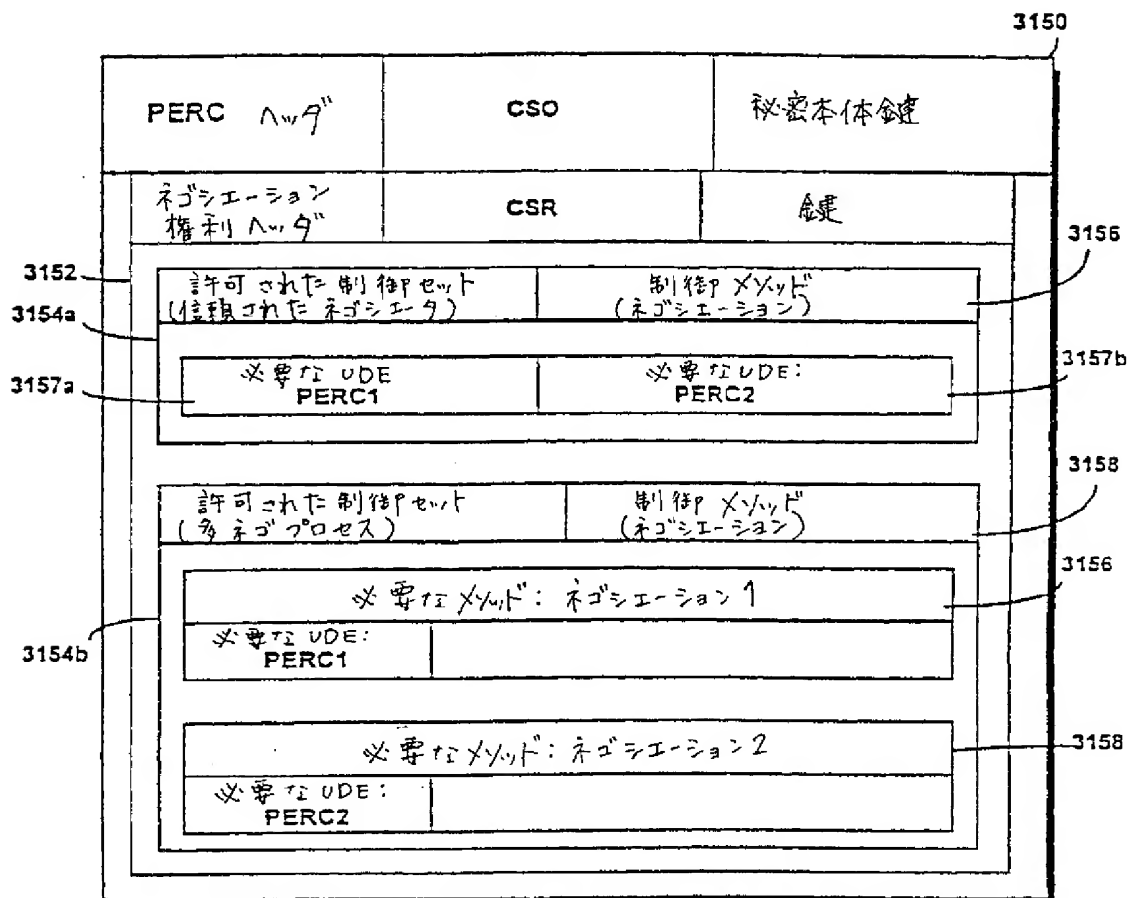 3150
PERC ヘッダ CSO 秘密本体鍵
ネゴシエーション
権利ヘッダ CSR 鍵
3156
3152
許可された制御セット 制御メソッド
(信頼されたネゴシエータ) (ネゴシエーション)
3154a
3157a
必要なUDE 必要なUDE:
PERC1 PERC2
3157b
3158
許可された制御セット 制御メソッド
(多ネゴプロセス) (ネゴシエーション)
3156
必要なメソッド: ネゴシエーション1
3154b
必要なUDE:
PERC1
必要なメソッド: ネゴシエーション2
3158
必要なUDE:
PERC2